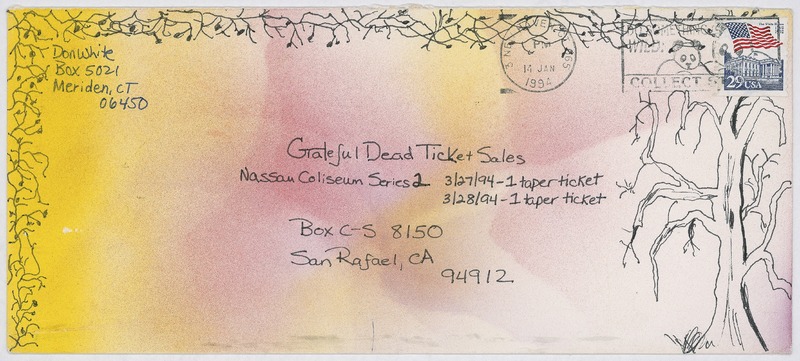 Don White
Box 5021
Meriden, CT
06450
P M
14 JAN
1994
WILD:
COLLECT S
29 USA
Grateful Dead Ticket Sales
Nassau Coliseum Series 2 3/27/94 - 1 taper ticket
3/28/94 - 1 taper ticket
Box C-S 8150
San Rafael, CA
94912